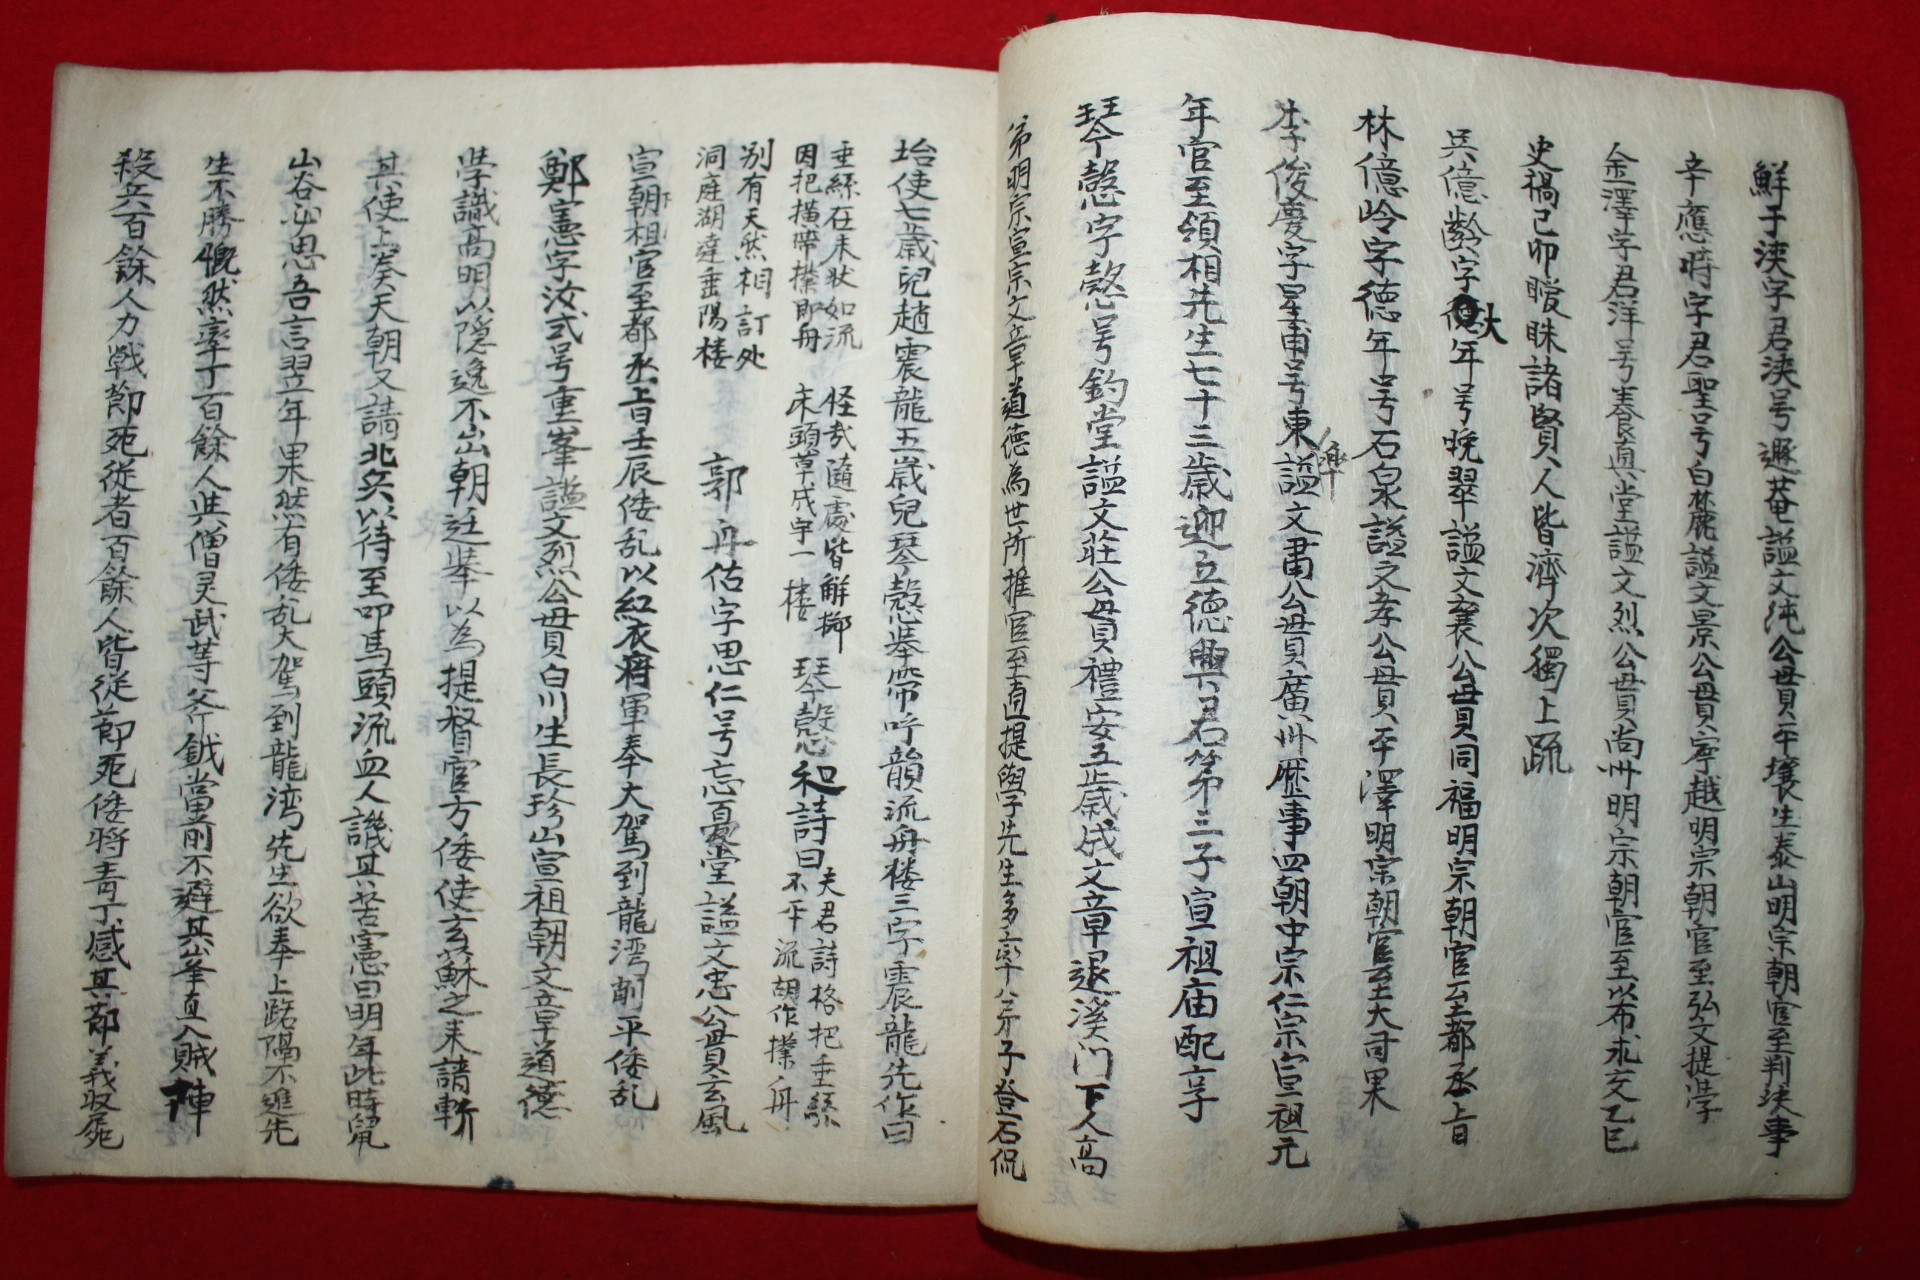 鮮于浹字君浹号遯菴謚文純公貫平壤生泰山明宗朝官至判决事
辛應時字君聖号白麓謚文景公貫寧越明宗朝官至弘文提学
金澤字君洋号養真堂謚文烈公貫尚州明宗朝官至以布衣文乙巳
史禍己卯曖昧諸賢人皆濟次獨上疏
吳億齡字大年号晚翠謚文襄公貫同福明宗朝官至都丞旨
林億岭字德年号石泉謚文孝公貫平澤明宗朝官至大司果
李俊慶字星甫号東皐謚文肅公貫廣州歷事四朝中宗仁宗宣祖元
年官至領相先生七十三歲迎立德興君第三子宣祖庙配享
琴愨字愨号釣堂謚文莊公貫禮安五歲成文章退溪門下人高
弟明宗宣宗文章道德為世所推官至直提學先生多率八弟子登石侃
坮使七歲兒趙震龍五歲兒琴愨奉帶呼韻流舟楼三字震龍先作曰
垂絲在末狀如流 怪哉隨處皆解梛
因把橫帶撲即舟 床頭草成宇一楼 琴愨和詩曰 夫君詩格把垂絲
不平流胡作撲舟
別有天然相訂处
洞庭湖達垂陽楼 郭舟估字思仁号忘憂堂謚文忠公貫玄風
宣朝朝官至都丞旨壬辰倭乱以紅衣将軍奉大駕到龍湾削平倭乱
鄭憲字汝式号重峯謚文烈公貫白川生長珍山宣祖朝文章道德
学識高明以隱逸不出朝廷举以為提督官方倭使玄蘇之来請斬
其使上奏天朝又請北兵以待至叩馬頭流血人譏其苦憲曰明年此時鼠
山谷必思吾言翌年果然有倭乱大駕到龍湾先生欲奉上路隔不進先
生不勝慨然率丁百餘人与僧灵武等斧鉞當前不避其峯直入賊陣
殺兵百餘人力戰節死從者百餘人皆從節死倭將青丁感其節義收屍